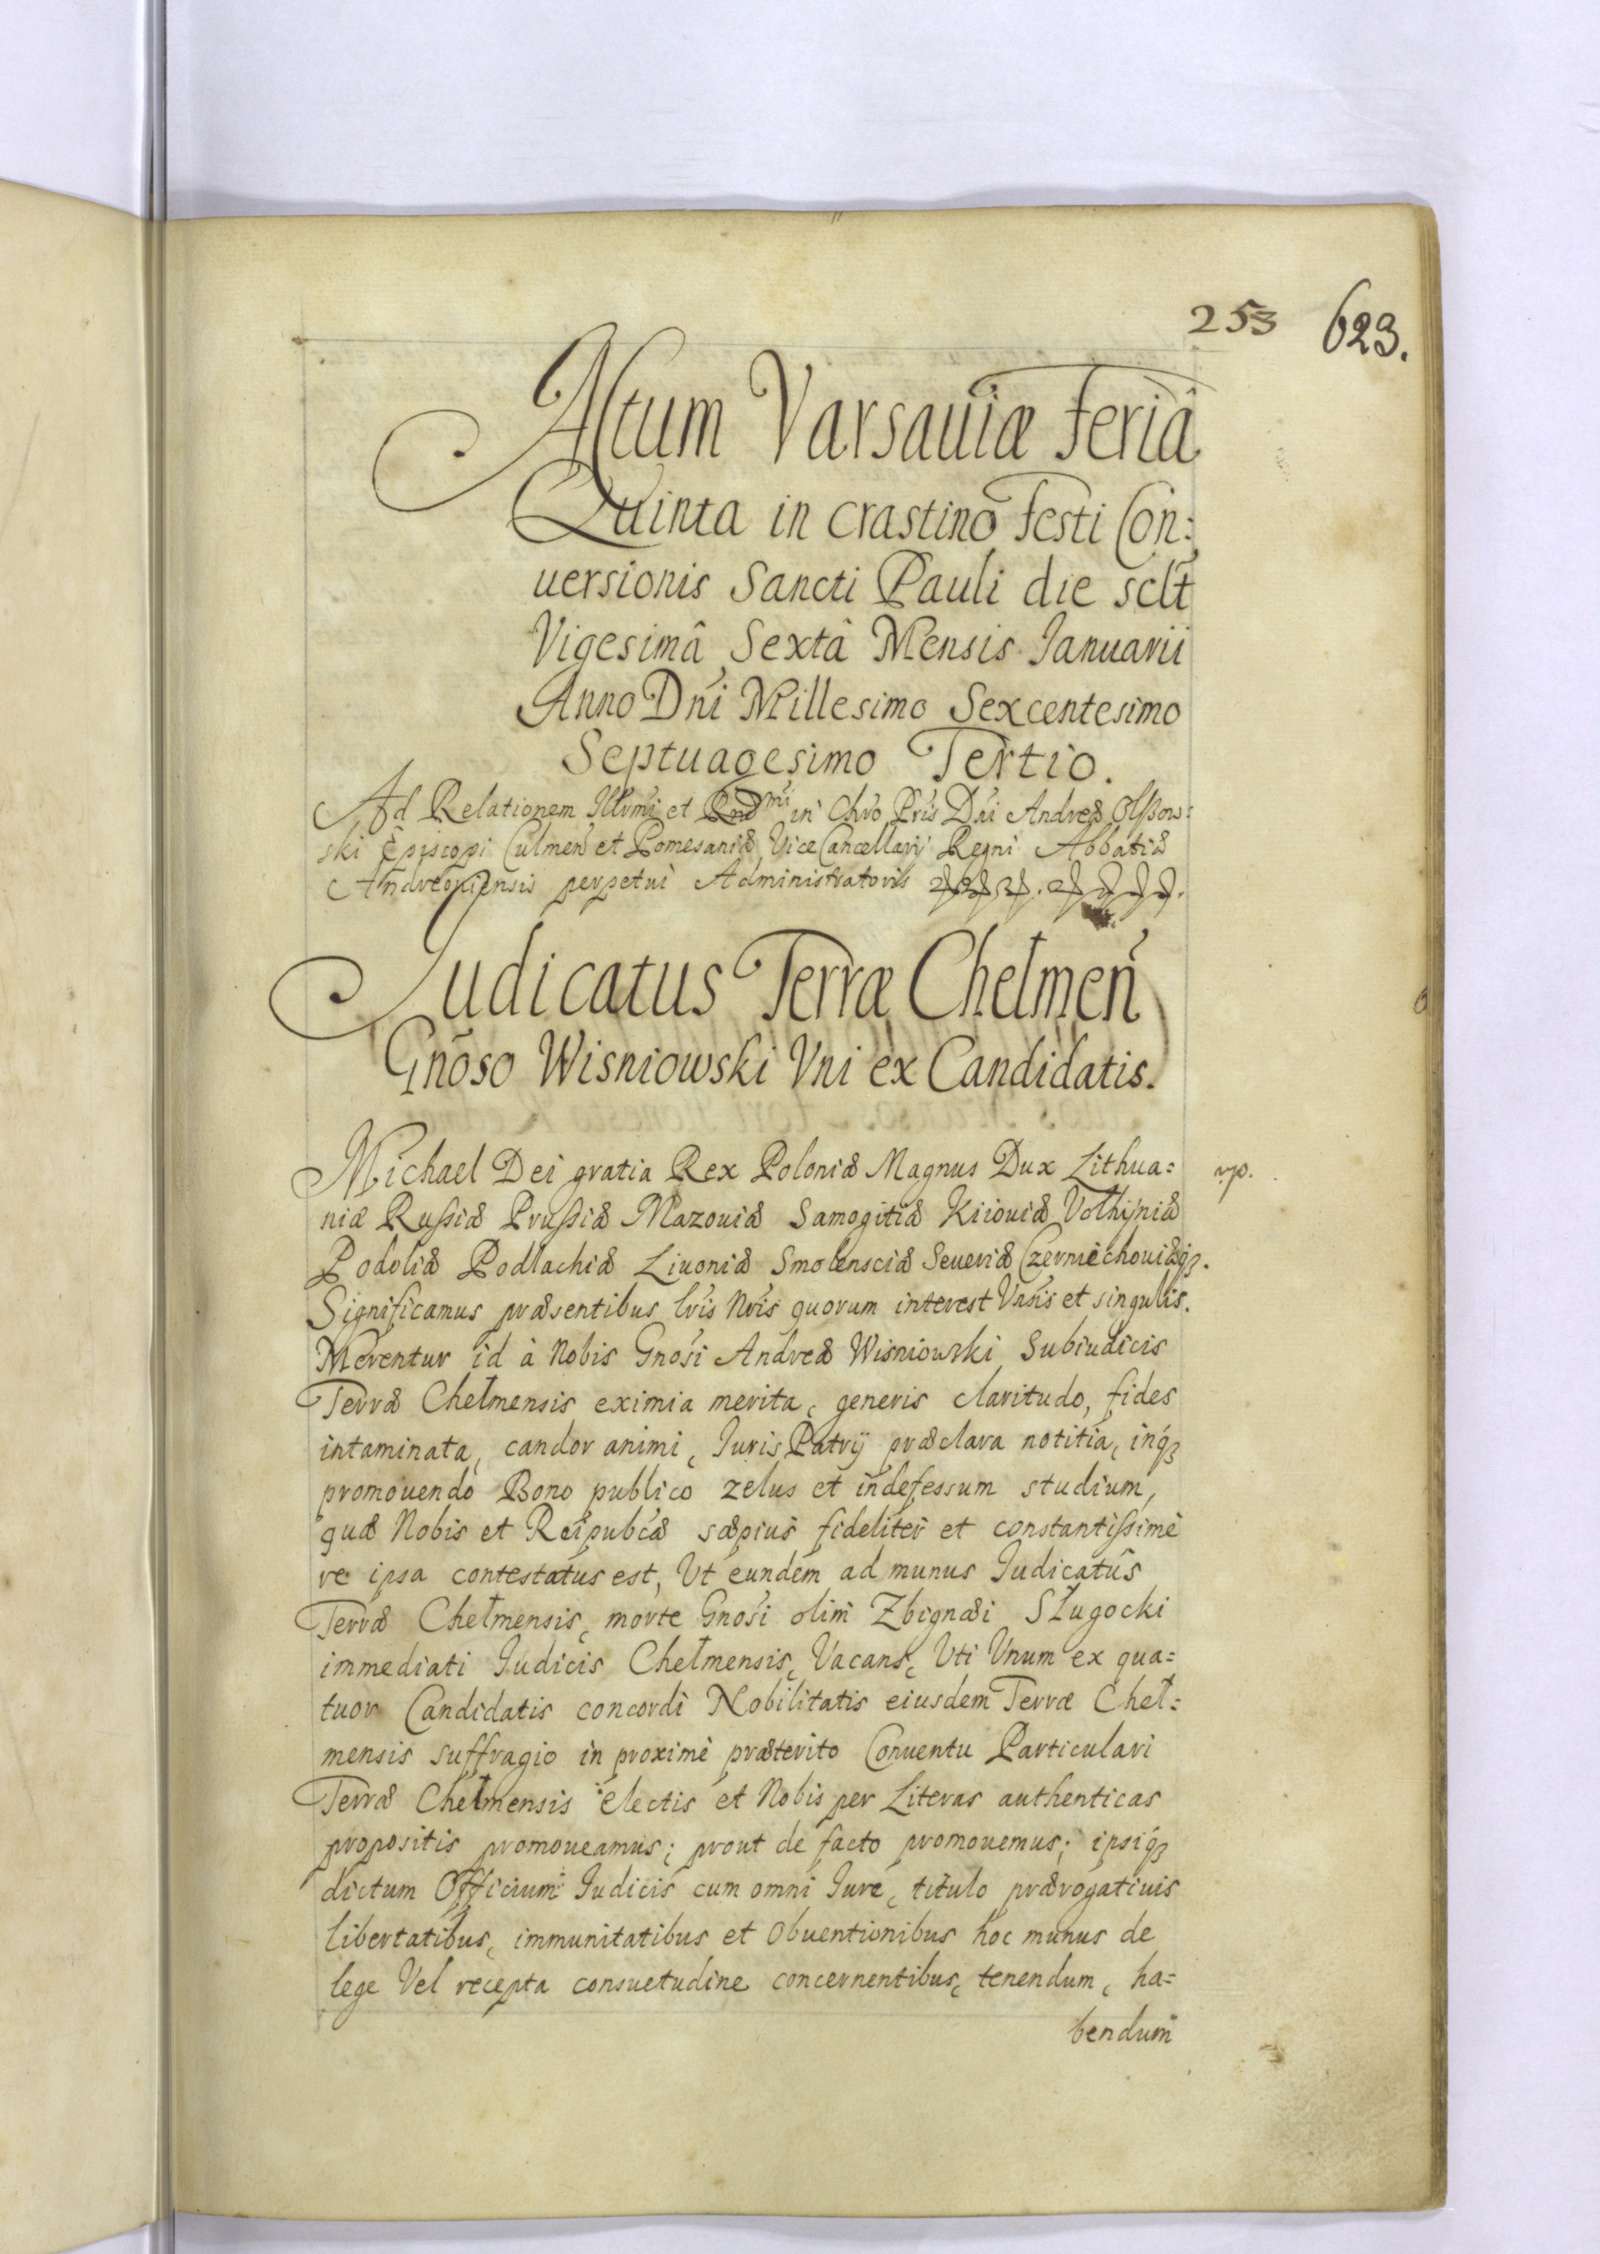 253 623.
Actum Varsaviæ feriâ
Quinta in crastino festi Con:
uersionis Sancti Pauli die sclt
Vigesimâ Sextâ Mensis Ianuarii
Anno Dni Millesimo Sexcentesimo
Septuagesimo Tertio.
Ad Relationem Illrmi et Rndmi in Chro Pris Dni Andreæ Olßows:
ski Episcopi Culmen et Pomesaniæ Vice Cancellarij Regni Abbatiæ
Andreoviensis perpetui Administratoris
Judicatus Terræ Chełmen
Gnoso Wisniowski Vni ex Candidatis.
Michael Dei gratia Rex Poloniæ Magnus Dux Lithua= mp.
niæ Rußiæ Prußiæ Mazouiæ Samogitiæ Kiiouiæ Volhÿniæ
Podoliæ Podlachiæ Liuoniæ Smolensciæ Seueriæ Czerniechouiæq3.
Significamus præsentibus lris Nris quorum interest Vnsis et singulis.
Merentur id à Nobis Gnosi Andreæ Wisniowski Subiudicis
Terræ Chełmensis eximia merita, generis claritudo, fides
intaminata, candor animi, Iuris Patrij præclara notitia, inq3
promouendo Bono publico zelus et indefessum studium,
quæ Nobis et Reipubcæ sæpius fideliter et constantißimè
re ipsa contestatus est, Vt eundem ad munus Iudicatûs
Terræ Chełmensis, morte Gnosi olim Zbignæi Sługocki
immediati Iudicis Chełmensis, Vacans, Vti Vnum ex qua=
tuor Candidatis concordi Nobilitatis eiusdem Terræ Cheł=
mensis suffragio in proximè præterito Conuentu Particulari
Terræ Chełmensis electis et Nobis per Literas authenticas
propositis promoueamus; prout de facto promouemus; ipsiq3
dictum Officium Iudicis cum omni Iure, titulo prærogatiuis
libertatibus, immunitatibus et obuentionibus hoc munus de
lege Vel recepta consuetudine concernentibus, tenendum, ha=
bendum